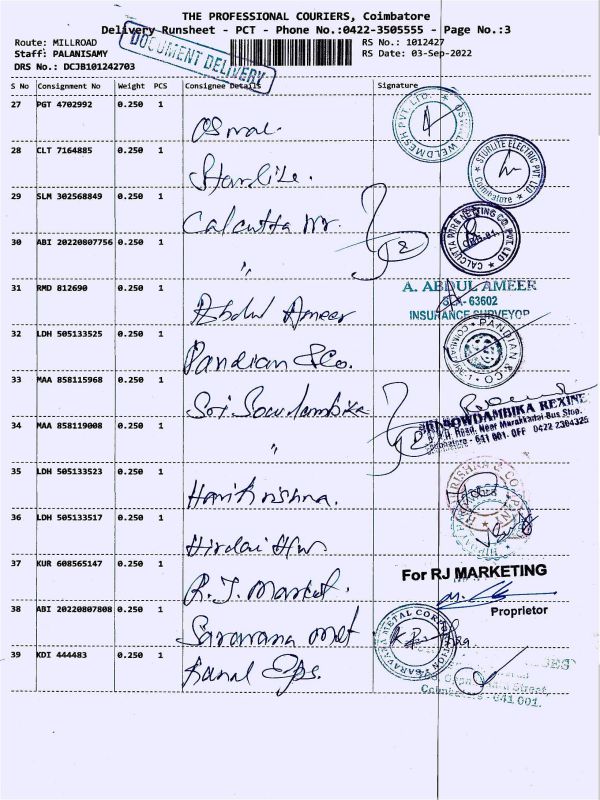 THE PROFESSIONAL COURIERS, Coimbatore
Delivery Runsheet - PCT - Phone No.:0422-3505555 - Page No.:3
Route: MILLROAD
Staff: PALANISAMY
DRS No.: DCJB101242703
RS No.: 1012427
RS Date: 03-Sep-2022
DOCUMENT DELIVERY
S No Consignment No Weight PCS Consignee Details Signature
27 PGT 4702992 0.250 1
WELDMESH PVT. LTD.
28 CLT 7164885 0.250 1 Starlite.
STURLITE ELECTRIC PVT. LTD
Coimbatore
29 SLM 302568849 0.250 1 Calcutta
CALCUTTA CO. PVT. LTD
30 ABI 20220807756 0.250 1 "
2
31 RMD 812690 0.250 1 Abdul Ameer
A. ABDUL AMEER
SLA- 63602
INSURANCE SURVEYOR
32 LDH 505133525 0.250 1 Pandian & Co.
PANDIAN & CO.
33 MAA 858115968 0.250 1 Sri Sowdambika
SOWDAMBIKA REXINE
Road, Near Marakkadai Bus Stop.
Coimbatore - 641 001. OFF 0422 2394325
34 MAA 858119008 0.250 1 "
2
35 LDH 505133523 0.250 1 Harikrishna.
KRISHNA & COMPANY
36 LDH 505133517 0.250 1
37 KUR 608565147 0.250 1 R. J. Market
For RJ MARKETING
Proprietor
38 ABI 20220807808 0.250 1 Saravana Met
SARAVANA METAL CORPORATION
39 KDI 444483 0.250 1
Street,
Coimbatore - 641 001.